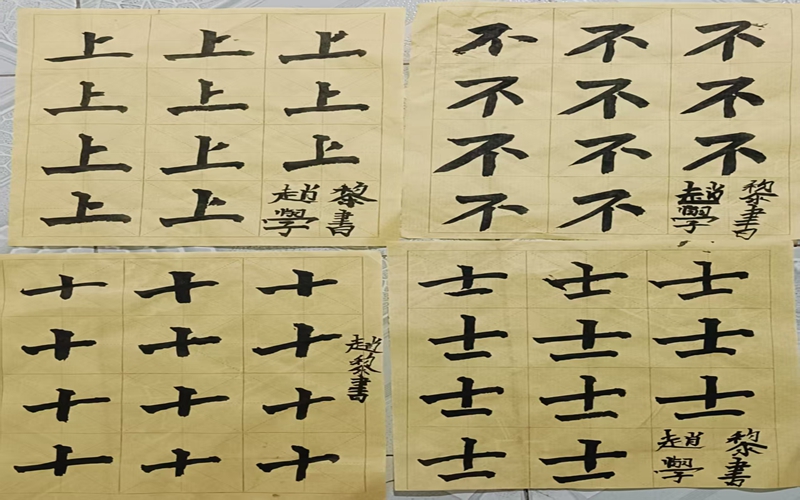 上 上 上
上 上 上
上 上 上
上 上
趙學
黎書
不 不 不
不 不 不
不 不 不
不 不
趙學
黎書
十 十 十
十 十 十
十 十 十
十 十 十
趙黎書
士 士 士
士 士 士
士 士 士
士 士
趙學
黎書